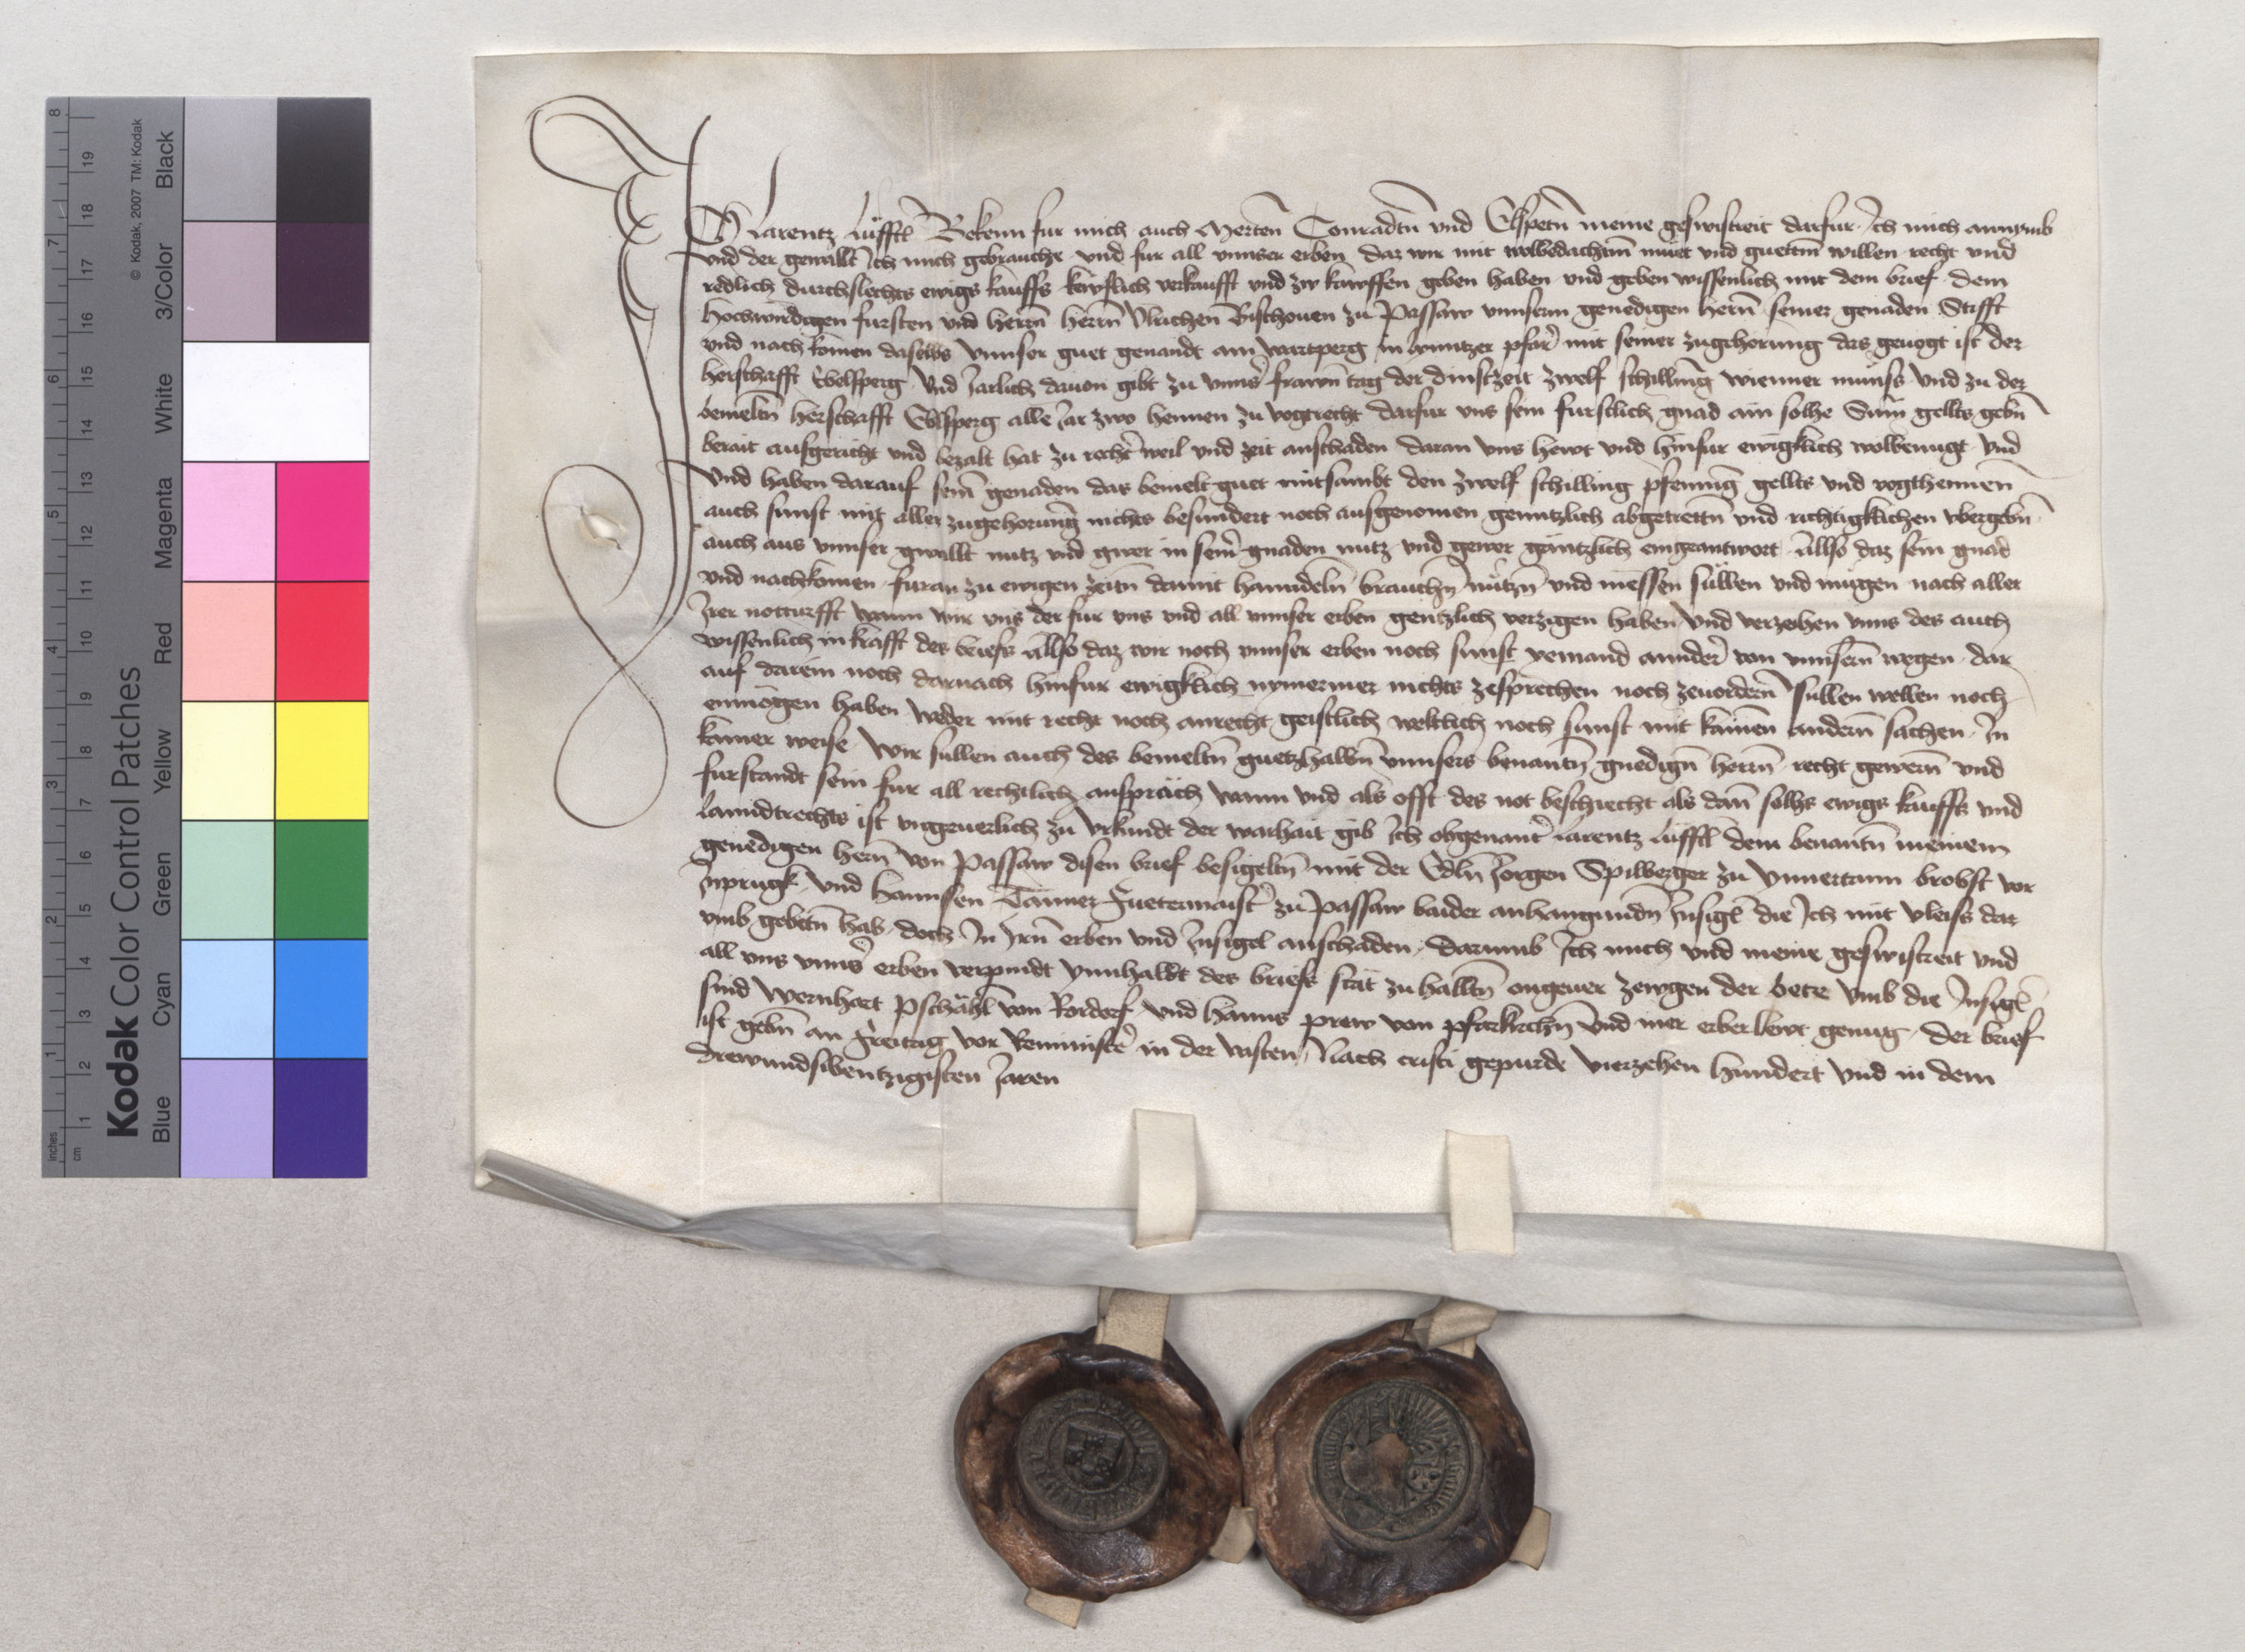 Ich Larentz Lüfftl Bekenn fur mich auch Merten Conradtn und Elspetn meine geswistreit darfur Ich mich annymb
und der gewallt Ich mich gebrauche und fur all unnser erben daz wir mit wolbedachtm muet und guettm willen recht und
redlich durchslechts ewigs kauffs kewflich verkaufft und zw kawffen geben haben und geben wissenlich mit dem brief dem
Hochwirdigen fursten und herrn herrn Ulrichen Bischouen zu Passaw unnserm genedigen herrn seiner genaden Stifft
und nachkomen daselbs unnser guet genandt am Wartperg in pfarr mit seiner zugehorung das geuogt ist der
herschafft Ebelsperg Und Jarlich dauon gibt zu unns frawn tag der dinstzeit zwelf schilling wienner munss und zu der
bemeltn herschafft Eblsperg alle Jar zwo hennen zu vogtrecht darfur uns sein furstlich gnad ain solhe Sum gellts gebn
berait ausgericht und bezalt hat zu rechter weil und zeit anschaden daran uns hewt und hinfur ewigklich wolbenugt und
Und haben darauf sein genaden das bemelt guet mitsambt den zwelf schilling pfenning gellts und vogthennen
auch sunst mit aller zugehorung nichts besundert noch ausgenomen genntzlich abgetrettn und richtigklichen ubergebn
auch aus unnser gwallt nutz und gwer in seiner gnaden nutz und gewer gäntzlich eingeantwort Allso daz sein gnad
und nachkomen furan zu ewigen zeitn damit hanndeln brauchn nützn und niessen süllen und mügen nach aller
Irer notturfft wann wir uns der fur uns und all unnser erben gentzlich verzigen haben und verzeihen unns des auch
wissenlich in krafft des briefs Allso daz wir noch unnser erben noch sunst yemand annder von unnsern wegen dar
auf darein noch darnach hinfur ewigklich nymermer nichts zesprechen noch zeuordern sullen wellen noch
enmögen haben weder mit recht noch anrecht geistlich weltlich noch sunst mit kainen andern sachen In
kainer weise Wir sullen auch des bemeltn guetzhalbn unnsers benantn gnedign herrn recht gewern und
furstandt sein fur all rechtlich anspräch wann und als offt des not beschiecht als dan solhs ewigs kauffs und
lanndtrechts ist ungeuerlich zu urkundt der warhait gib Ich obgenanter Larentz Lüfftl dem benantn meinem
genedigen hern von Passaw disen brief besigeltn mit der Edln Jorgen Spilberger zu Ynnertann brobst vor
Ynprugk und Hannsen Tanner Fuetermaister zu Passaw baider anhangundn Insigl die Ich mit vleiss dar
umb gebetn hab doch In Irn erben und Insigel anschaden Darumb Ich mich und meine geswistreit und
all uns unns erben verpindt ynnhaldt des briefs stät zu halltn ongeuer zewgen der bete umb die Insigl
sind Wernhart Pschähl von Rordorf und Hanns prew von pfarkirchn und mer erber lewt genug Der brief
ist gebn an Freitag vor Reminiscere in der vasten Nach cristi gepurde vierzehen hundert und in dem
drewundsibentzigisten Jaren
Kodak Color Control Patches
© Kodak, 2007 TM: Kodak
Blue Cyan Green Yellow Red Magenta White 3/Color Black
inches 1 2 3 4 5 6 7 8
cm 1 2 3 4 5 6 7 8 9 10 11 12 13 14 15 16 17 18 19